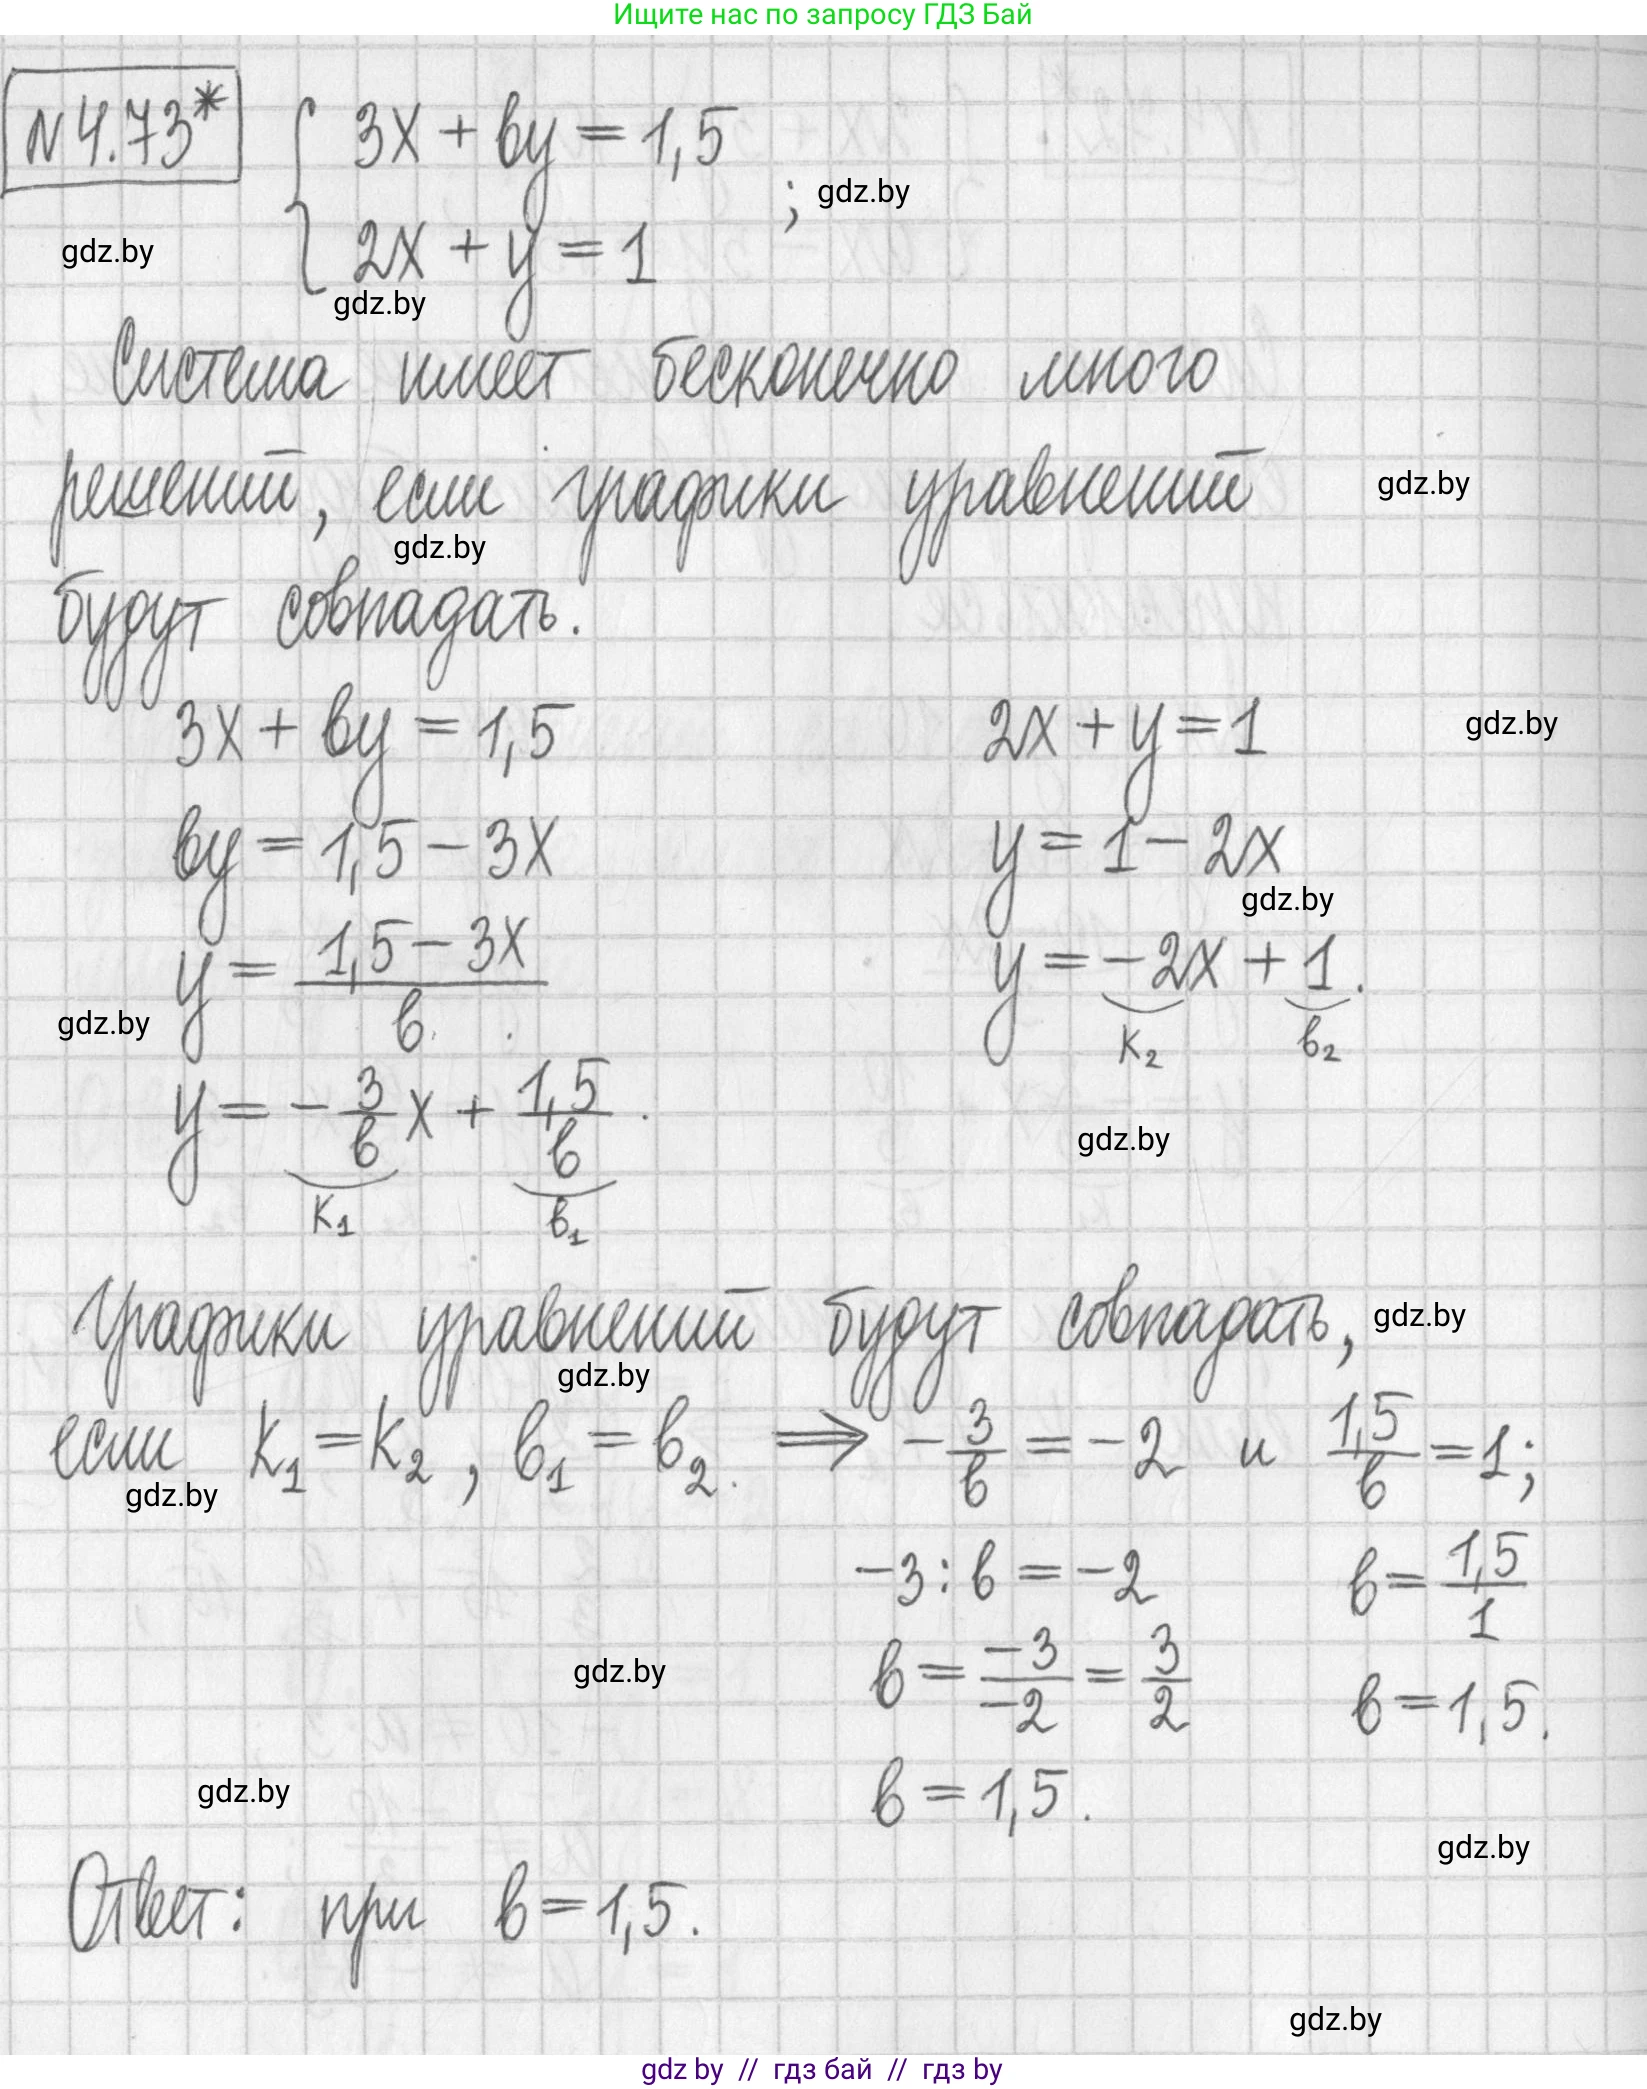 Ищите нас по запросу ГДЗ Бай
N 4.73*
3x + by = 1,5
;
gdz.by
gdz.by
2x + y = 1
gdz.by
Система имеет бесконечно много
решений, если графики уравнений
gdz.by
gdz.by
будут совпадать.
3x + by = 1,5
2x + y = 1
gdz.by
by = 1,5 - 3x
y = 1 - 2x
gdz.by
y = (1,5 - 3x)/b
y = -2x + 1.
gdz.by
k₂ b₂
y = -3/b x + 1,5/b.
gdz.by
k₁ b₁
Графики уравнений будут совпадать,
gdz.by
gdz.by
если k₁ = k₂, b₁ = b₂. ⇒ -3/b = -2 и 1,5/b = 1;
gdz.by
-3 : b = -2 b = 1,5/1
gdz.by
b = -3/-2 = 3/2 b = 1,5.
gdz.by
b = 1,5.
gdz.by
Ответ: при b = 1,5.
gdz.by
gdz by // гдз бай // гдз by